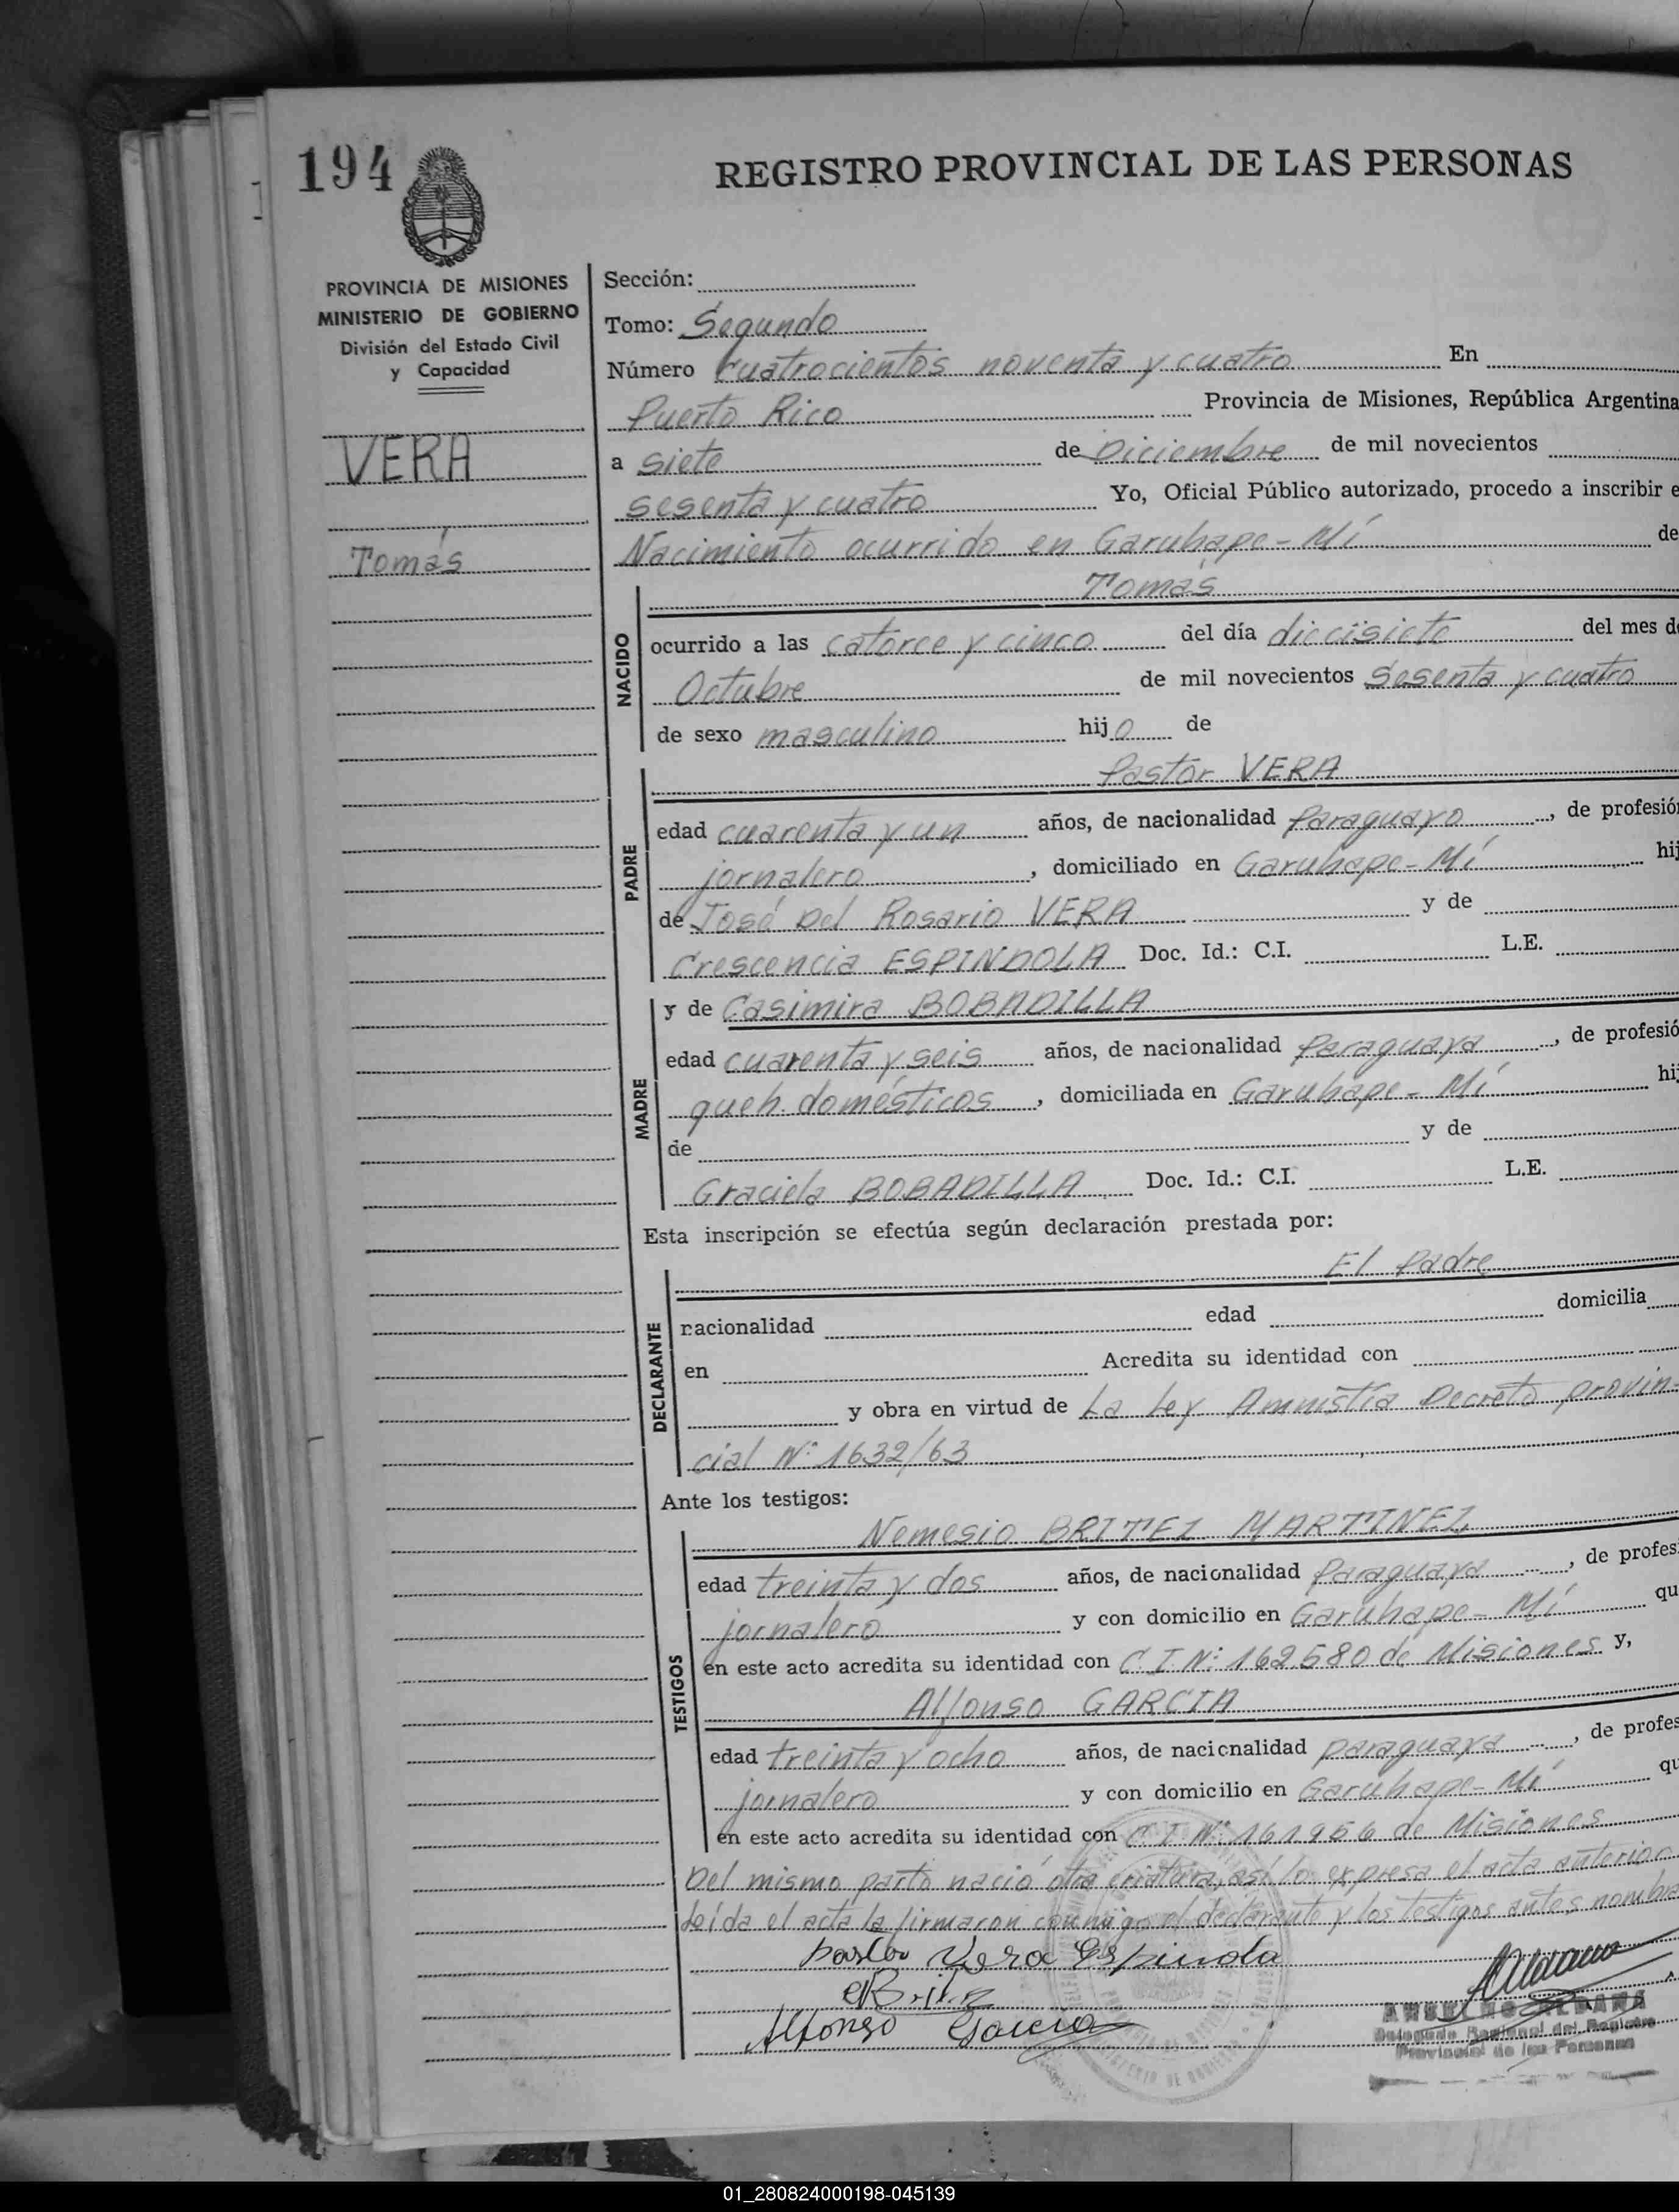 194
REGISTRO PROVINCIAL DE LAS PERSONAS
PROVINCIA DE MISIONES
MINISTERIO DE GOBIERNO
División del Estado Civil
y Capacidad
VERA
Tomás
Sección:
Tomo: Segundo
Número Cuatrocientos noventa y cuatro En
Puerto Rico Provincia de Misiones, República Argentina
a siete de Diciembre de mil novecientos
sesenta y cuatro Yo, Oficial Público autorizado, procedo a inscribir e
Nacimiento ocurrido en Garuhape-Mí de
NACIDO
Tomás
ocurrido a las catorce y cinco del día diecisiete del mes de
Octubre de mil novecientos Sesenta y cuatro
de sexo masculino hijo de
PADRE
Pastor VERA
edad cuarenta y un años, de nacionalidad Paraguayo, de profesión
jornalero, domiciliado en Garuhape-Mí hij
de José Del Rosario VERA y de
Crescencia ESPINDOLA Doc. Id.: C.I. L.E.
MADRE
y de Casimira BOBADILLA
edad cuarenta y seis años, de nacionalidad Paraguaya, de profesió
queh. domésticos, domiciliada en Garuhape-Mí hij
de y de
Graciela BOBADILLA Doc. Id.: C.I. L.E.
Esta inscripción se efectúa según declaración prestada por:
DECLARANTE
El Padre
nacionalidad edad domicilia
en Acredita su identidad con
y obra en virtud de La Ley Amnistía Decreto provin-
cial Nº 1632/63
Ante los testigos:
TESTIGOS
Nemesio BRITEZ MARTINEZ
edad treinta y dos años, de nacionalidad Paraguaya, de profes
jornalero y con domicilio en Garuhape-Mí qu
en este acto acredita su identidad con C I Nº 162580 de Misiones y,
Alfonso GARCIA
edad treinta y ocho años, de nacionalidad paraguaya, de profes
jornalero y con domicilio en Garuhape-Mí qu
en este acto acredita su identidad con C I Nº 161956 de Misiones
Del mismo parto nació otra criatura, así lo expresa el acta anterior.
Leída el acta la firmaron conmigo el declarante y los testigos antes nombra
Pastor Vera Espinola
Britez
Alfonso Garcia
Delegado Regional del Registro
Provincial de las Personas
01_280824000198-045139